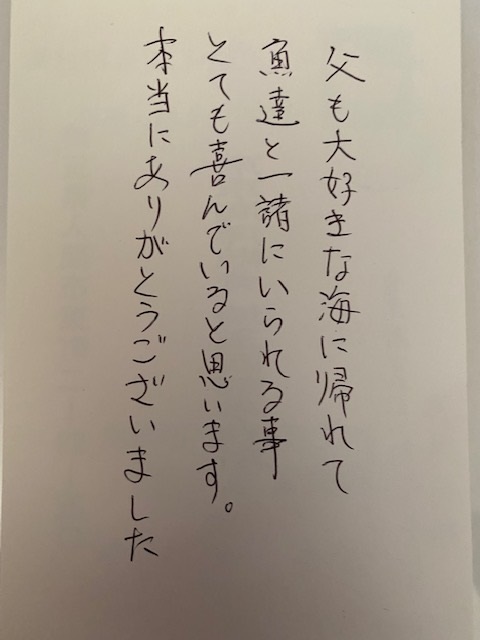 父も大好きな海に帰れて
魚達と一諸にいられる事
とても喜んでいると思います。
本当にありがとうございました